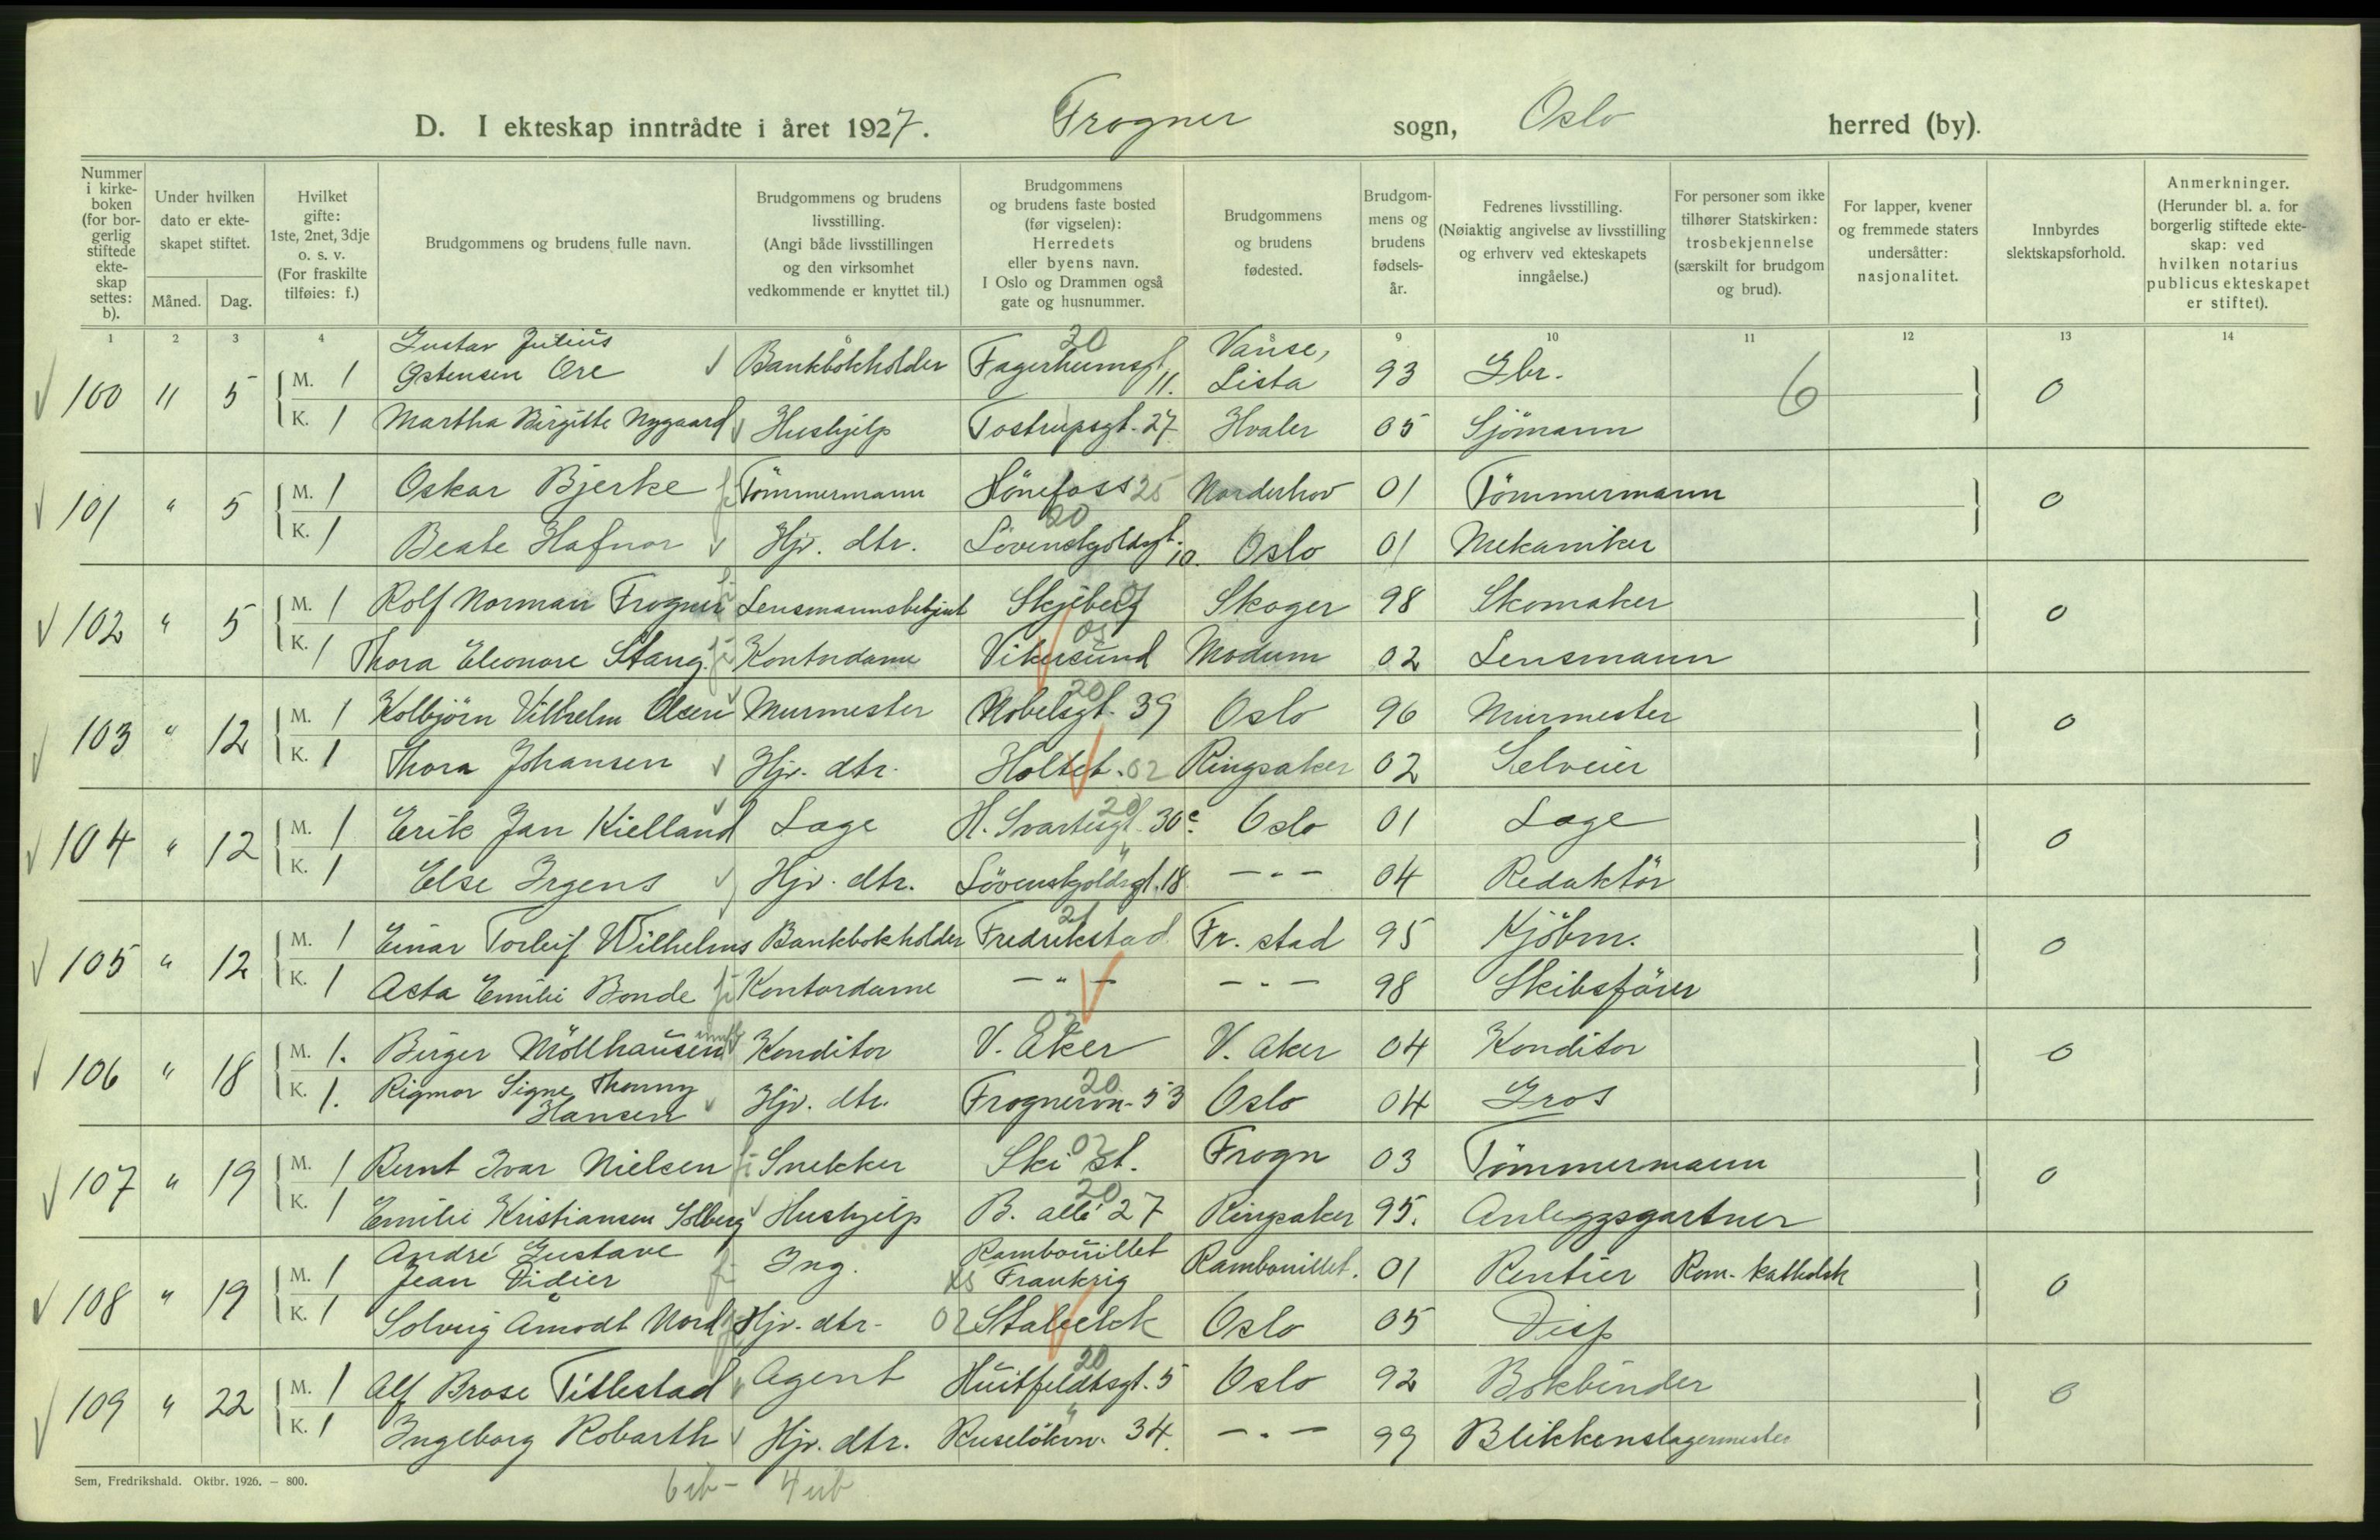 D. I ekteskap inntrådte i året 1927. Frogner sogn, Oslo herred (by).
Nummer i kirke-boken (for bor-gerlig stiftede ekte-skap settes: b).
Under hvilken dato er ekte-skapet stiftet.
Måned. Dag.
Hvilket gifte: 1ste, 2net, 3dje o. s. v. (For fraskilte tilføies: f.)
Brudgommens og brudens fulle navn.
Brudgommens og brudens livsstilling. (Angi både livsstillingen og den virksomhet vedkommende er knyttet til.)
Brudgommens og brudens faste bosted (før vigselen): Herredets eller byens navn. I Oslo og Drammen også gate og husnummer.
Brudgommens og brudens fødested.
Brudgom-mens og brudens fødsels-år.
Fedrenes livsstilling. (Nøiaktig angivelse av livsstilling og erhverv ved ekteskapets inngåelse.)
For personer som ikke tilhører Statskirken: trosbekjennelse (særskilt for brudgom og brud).
For lapper, kvener og fremmede staters undersåtter: nasjonalitet.
Innbyrdes slektskapsforhold.
Anmerkninger. (Herunder bl. a. for borgerlig stiftede ekte-skap: ved hvilken notarius publicus ekteskapet er stiftet).
1 2 3 4 9 10 11 12 13 14
100 11 5 M. 1 Gustav Julius Østensen Ore Bankbokholder 20 Fagerheimsgt. 11. Vanse, Lista 93 Gbr. 6 0
K. 1 Martha Birgitte Nygaard Hushjelp Tostrupsgt. 27 Hvaler 05 Sjömann
101 " 5 M. 1 Oskar Bjerke Tömmermann Hönefoss 25 Norderhov 01 Tömmermann 0
K. 1 Beate Hafnor Hjv. dtr. 20 Lövenskjoldsgt. 10. Oslo 01 Mekaniker
102 " 5 M. 1 Rolf Norman Frogner Lensmannsbetjent Skjeberg 01 Skoger 98 Skomaker 0
K. 1 Thora Eleonore Stang. Kontordame Vikersund 05 Modum 02 Lensmann
103 " 12 M. 1 Kolbjörn Vilhelm Olsen Murmester 20 Nobelsgt. 39 Oslo 96 Murmester 0
K. 1 Thora Johansen Hjv. dtr. Holtet. 02 Ringsaker 02 Selveier
104 " 12 M. 1 Erik Jan Kielland Lage H. Svartesgt. 20 30c. Oslo 01 Lage 0
K. 1 Else Irgens Hjv. dtr. " Lövenskjoldsgt. 18 -"- 04 Redaktör
105 " 12 M. 1 Einar Torleif Wilhelms Bankbokholder 21 Fredrikstad Fr. stad 95 Kjöbm. 0
K. 1 Asta Emilie Bonde Kontordame -"- -"- 98 Skibsförer
106 " 18 M. 1. Birger Möllhausen Konditor V. Aker 02 V. Aker 04 Konditor 0
K. 1. Rigmor Signe Thonny Hansen Hjv. dtr. 20 Frognervn. 53 Oslo 04 Gros
107 " 19 M. 1 Bernt Ivar Nielsen Snekker Ski st. 02 Frogn 03 Tömmermann 0
K. 1 Emilie Kristiansen Solberg Hushjelp 20 B. allé 27 Ringsaker 95. Anleggsgartner
108 " 19 M. 1 André Gustave Jean Didier Ing. Rambouillet Frankrig Rambouillet. 01 Rentier Rom. katholsk 0
K. 1 Solveig Amodt Nord Hjv. dtr. 02 Stabekk Oslo 05 Disp
109 " 22 M. 1 Alf Brose Titlestad Agent 20 Huitfeldtsgt. 5 Oslo 92 Bokbinder 0
K. 1 Ingeborg Robarth Hjv. dtr. " Ruselökvn. 34. -"- 99 Blikkenslagermester
Sem, Fredrikshald. Oktbr. 1926. — 800.